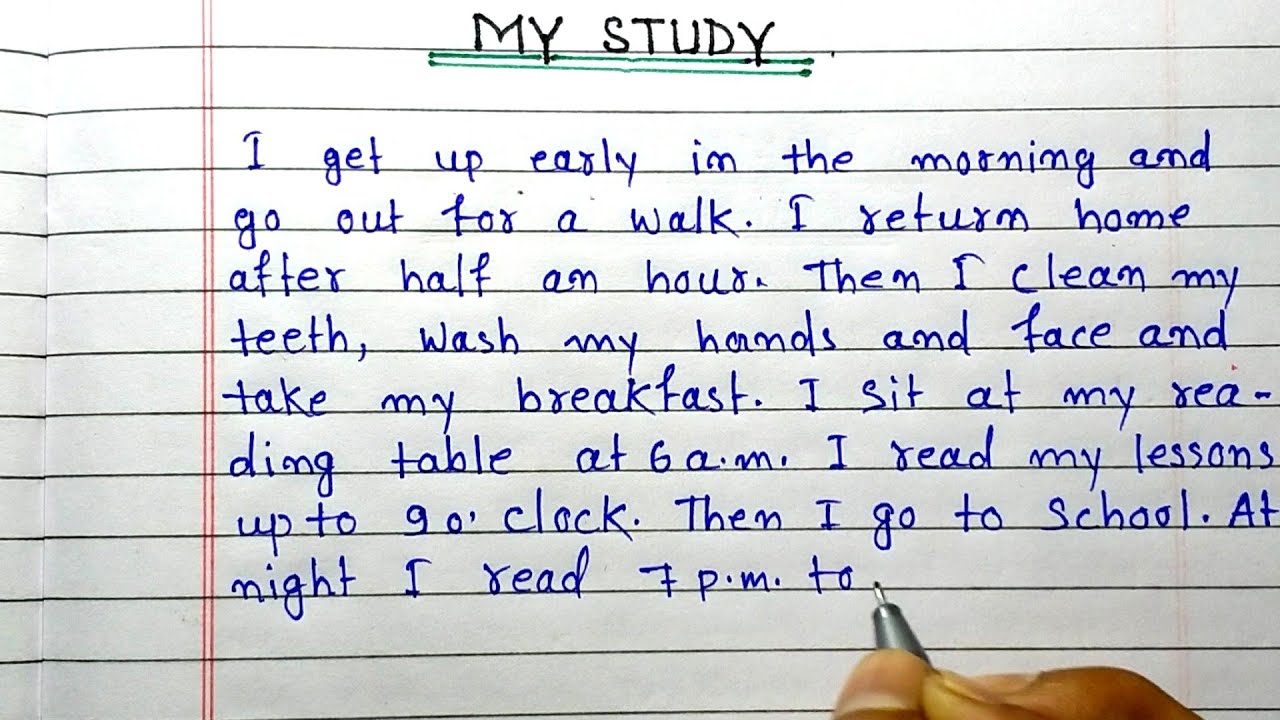 MY STUDY
I get up early in the morning and
go out for a walk. I return home
after half an hour. Then I clean my
teeth, wash my hands and face and
take my breakfast. I sit at my rea-
ding table at 6 a.m. I read my lessons
up to 9 o' clock. Then I go to school. At
night I read 7 p.m. to